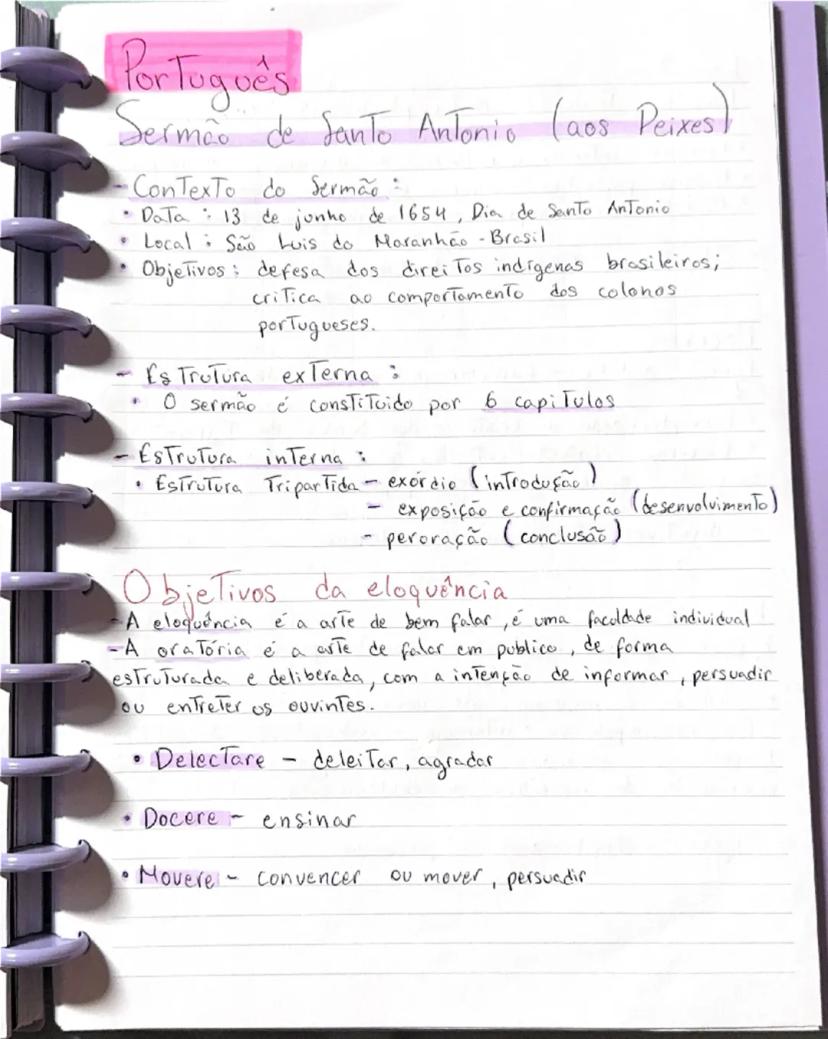 Português
Sermão de Santo Antonio (aos Peixes)
- Contexto do Sermão :
• Data : 13 de junho de 1654, Dia de Santo Antonio
• Local : São Luis do Maranhão - Brasil
• Objetivos : defesa dos direitos indígenas brasileiros;
critica ao comportamento dos colonos
portugueses.
- Estrutura externa :
• O sermão é constituido por 6 capitulos
- Estrutura interna :
• Estrutura Tripartida - exórdio (introdução)
- exposição e confirmação (desenvolvimento)
- peroração (conclusão)
Objetivos da eloquência
- A eloquência é a arte de bem falar, é uma faculdade individual
- A oratória é a arte de falar em publico, de forma
estruturada e deliberada, com a intenção de informar, persuadir
ou entreter os ouvintes.
• Delectare - deleitar, agradar
• Docere - ensinar
• Movere - convencer ou mover, persuadir